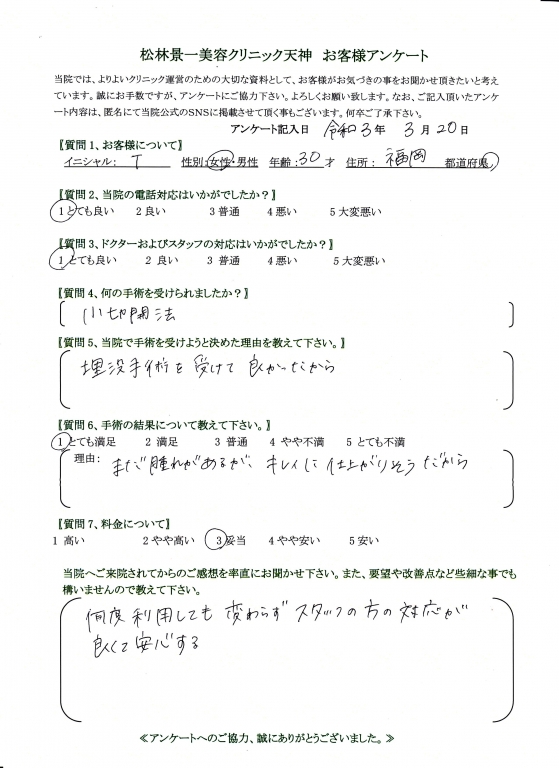 松林景一美容クリニック天神　お客様アンケート
当院では、よりよいクリニック運営のための大切な資料として、お客様がお気づきの事をお聞かせ頂きたいと考え
ています。誠にお手数ですが、アンケートにご協力下さい。よろしくお願い致します。なお、ご記入頂いたアンケ
ート内容は、匿名にて当院公式のSNSに掲載させて頂く事もございます。何卒ご了承下さい。
アンケート記入日　令和3年　3月20日
【質問1、お客様について】
イニシャル：　T　性別：女性・男性　年齢：30才　住所：　福岡　都道府県
【質問2、当院の電話対応はいかがでしたか？】
1 とても良い　2 良い　3 普通　4 悪い　5 大変悪い
【質問3、ドクターおよびスタッフの対応はいかがでしたか？】
1 とても良い　2 良い　3 普通　4 悪い　5 大変悪い
【質問4、何の手術を受けられましたか？】
小切開法
【質問5、当院で手術を受けようと決めた理由を教えて下さい。】
埋没手術を受けて良かったから
【質問6、手術の結果について教えて下さい。】
1 とても満足　2 満足　3 普通　4 やや不満　5 とても不満
理由：　まだ腫れがあるが、キレイに仕上がりそうだから
【質問7、料金について】
1 高い　2 やや高い　3 妥当　4 やや安い　5 安い
当院へご来院されてからのご感想を率直にお聞かせ下さい。また、要望や改善点など些細な事でも
構いませんので教えて下さい。
何度利用しても変わらずスタッフの方の対応が
良くて安心する
≪アンケートへのご協力、誠にありがとうございました。≫